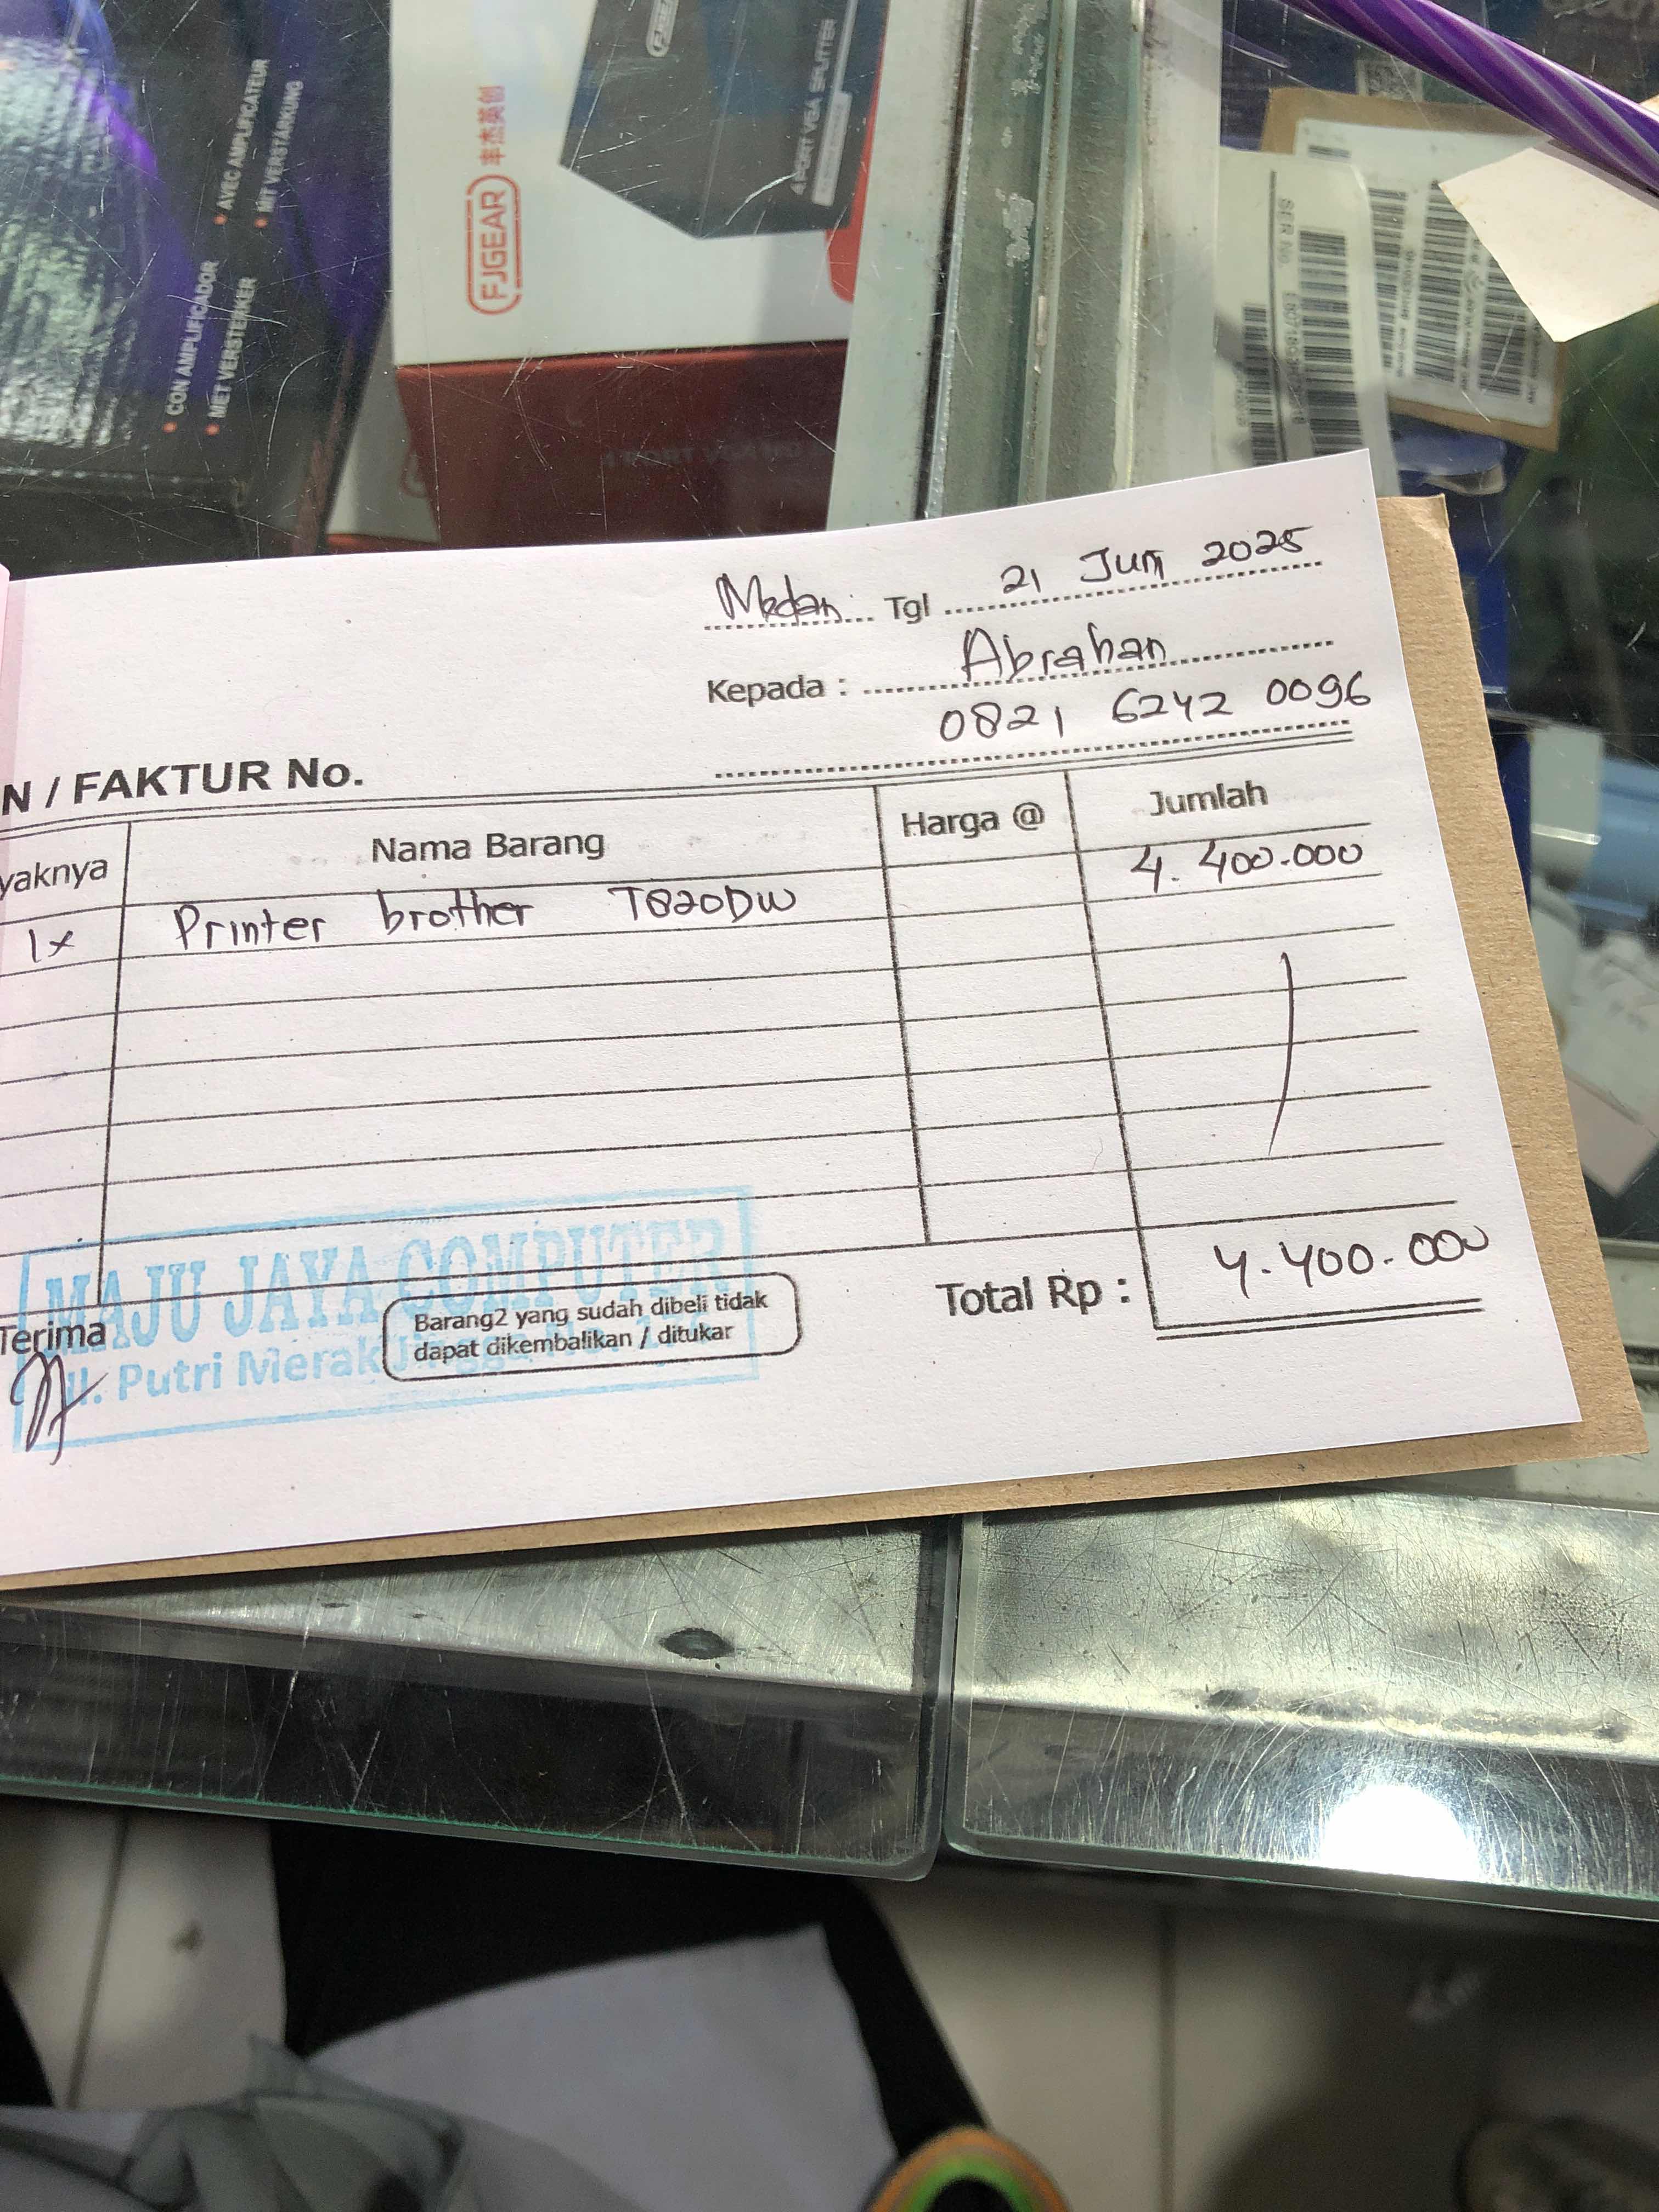 • CON AMPLIFICADOR
• AVEC AMPLIFICATEUR
• MET VERSTERKER
• MIT VERSTÄRKUNG
FJGEAR 丰杰英创
4 PORT VGA SPLITTER
SER.No.
Medan Tgl 21 Juni 2025
Kepada : Abrahan
0821 6242 0096
N / FAKTUR No.
yaknya Nama Barang Harga @ Jumlah
1x Printer brother T820DW 4.400.000
Total Rp : 4.400.000
MAJU JAYA COMPUTER
Jl. Putri Merak Jingga No.
Terima
Barang2 yang sudah dibeli tidak
dapat dikembalikan / ditukar